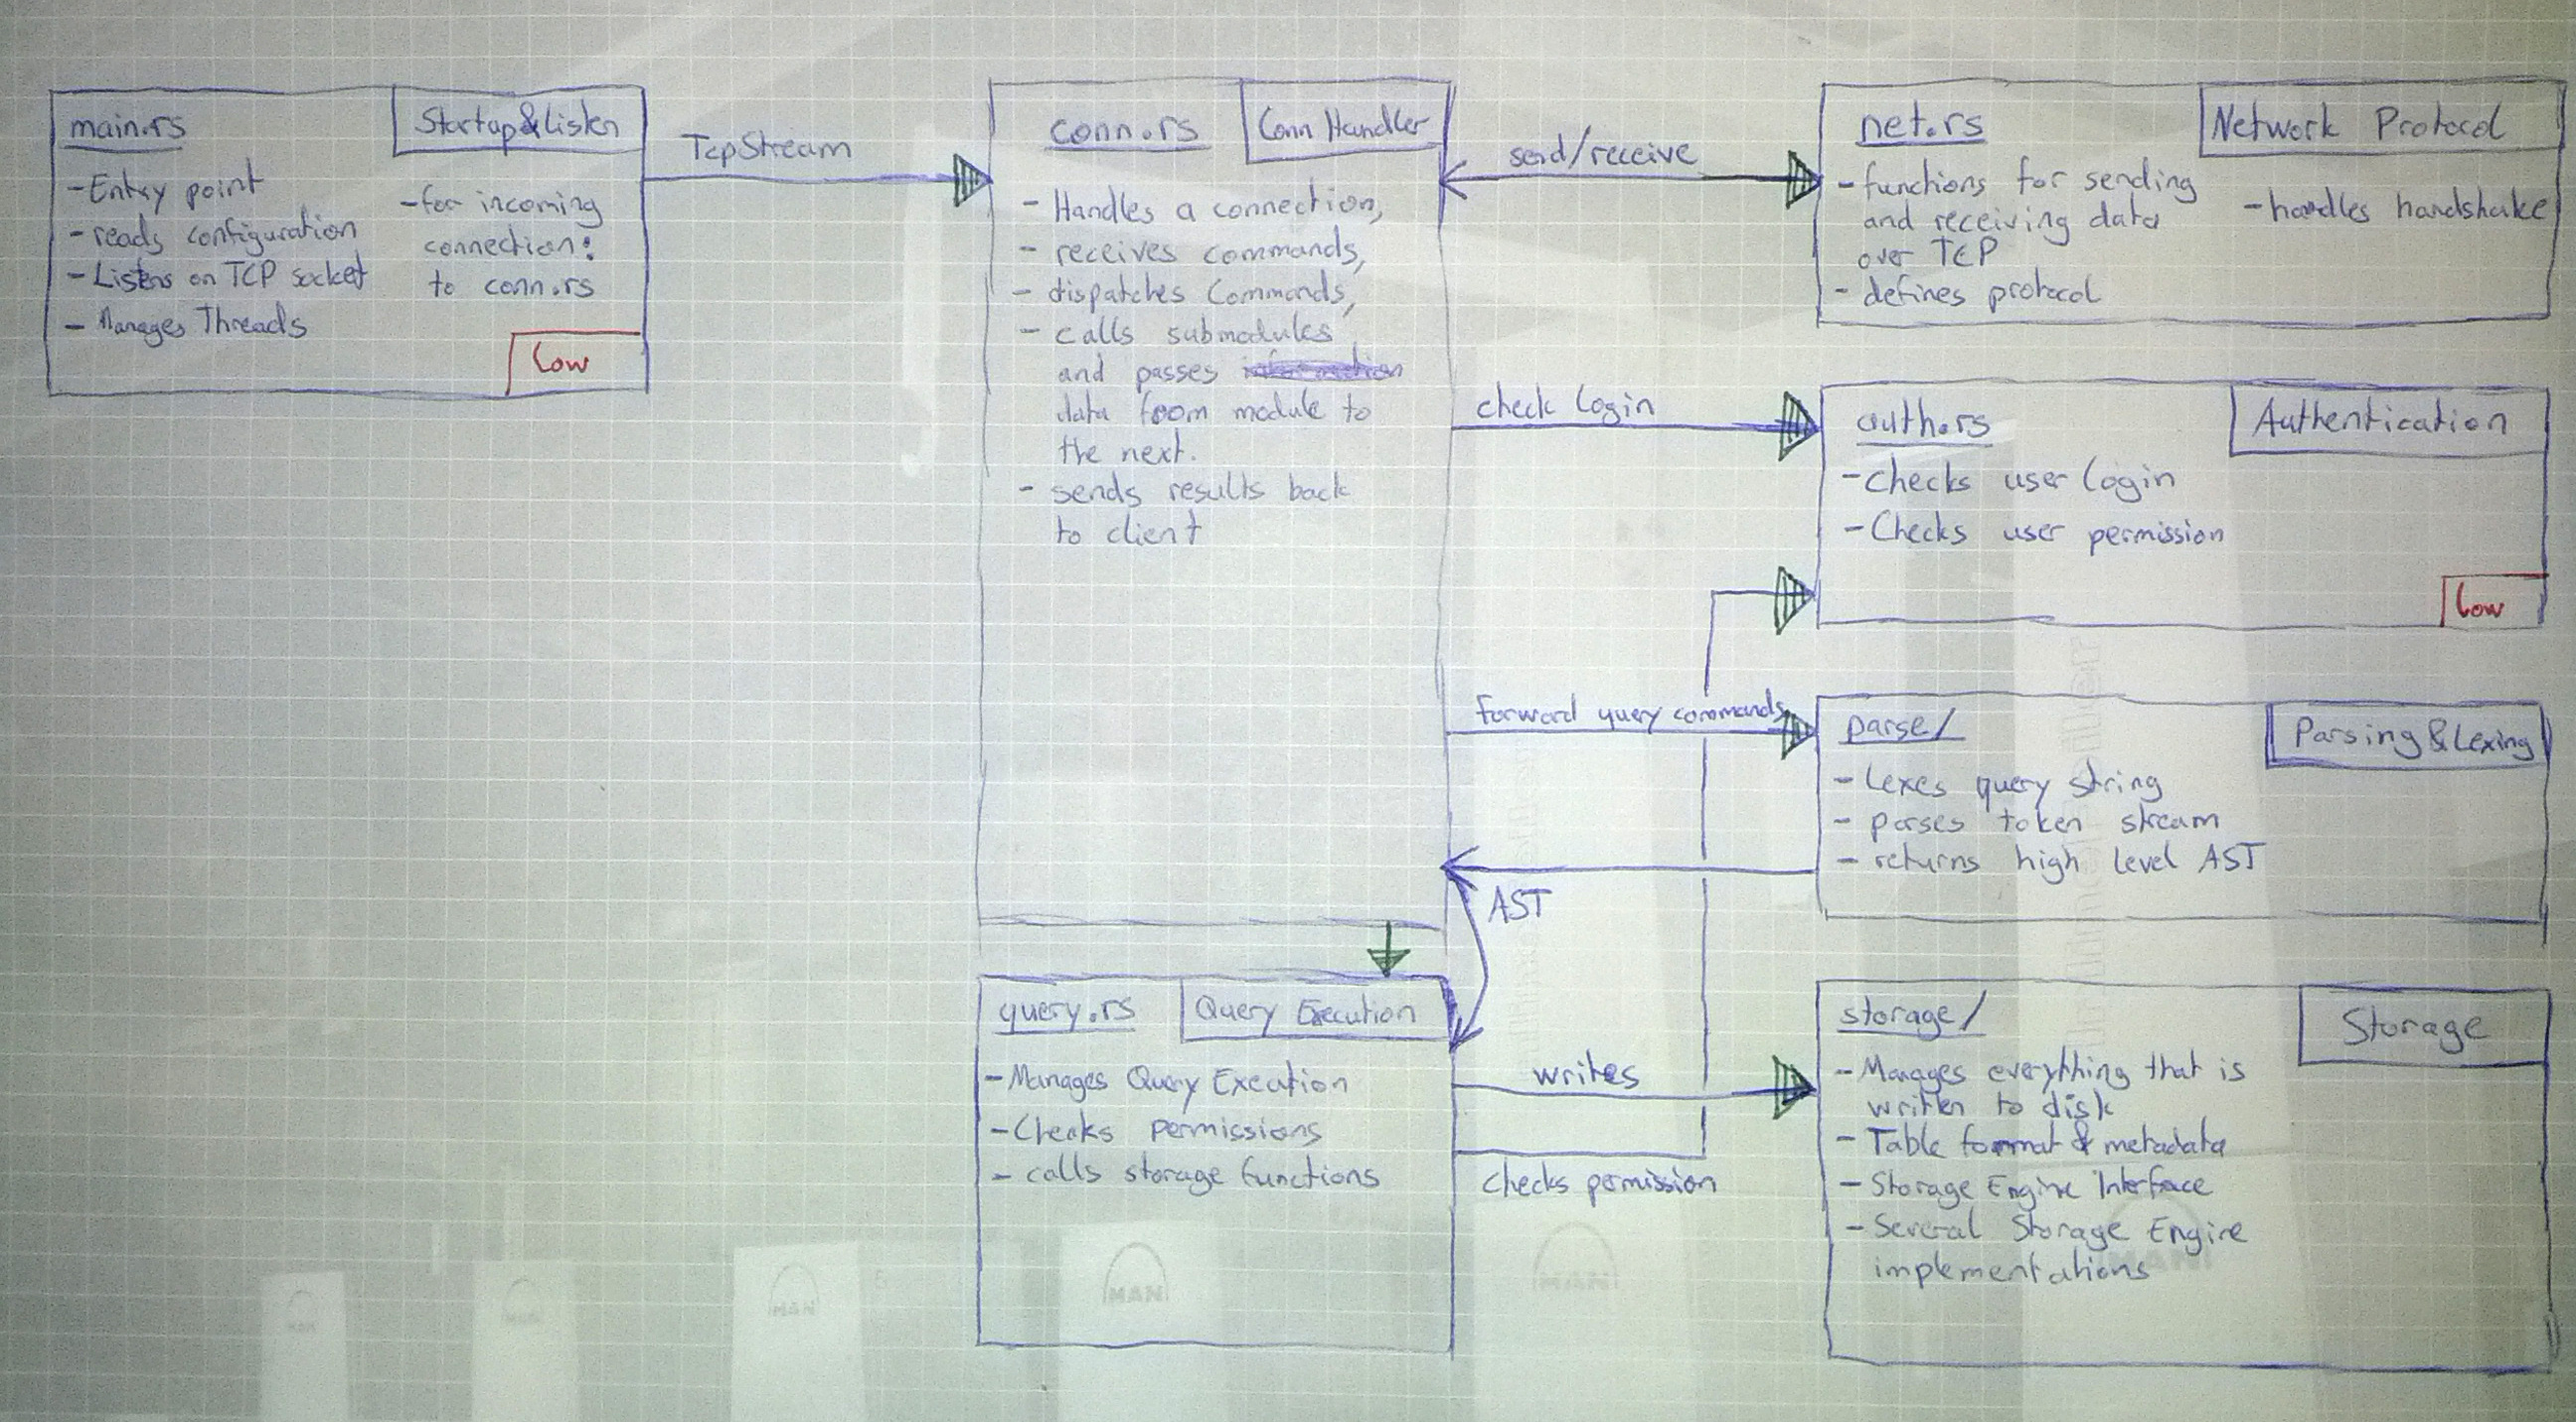 main.rs
Startup&Listen
-Entry point
-reads configuration
-Listens on TCP socket
-Manages Threads
-for incoming
connection:
to conn.rs
Low
TcpStream
conn.rs
Conn Handler
- Handles a connection,
- receives commands,
- dispatches Commands,
- calls submodules
and passes
data from module to
the next.
- sends results back
to client
send/receive
net.rs
Network Protocol
-functions for sending
and receiving data
over TCP
- defines protocol
-handles handshake
check Login
auth.rs
Authentication
-Checks user login
-Checks user permission
Low
forward query commands
parse/
Parsing&Lexing
- Lexes query string
- parses token stream
- returns high level AST
AST
query.rs
Query Execution
-Manages Query Execution
-Checks permissions
- calls storage functions
writes
checks permission
storage/
Storage
-Manages everything that is
written to disk
-Table format & metadata
-Storage Engine Interface
-Several Storage Engine
implementations
MAN
MAN
MAN
MAN
MAN
MAN